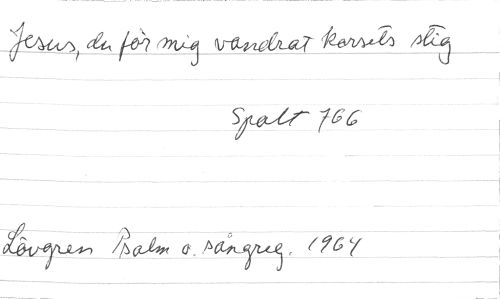 Jesus, du för mig vandrat korsets stig
Spalt 766
Lövgren Psalm o. sångreg. 1964